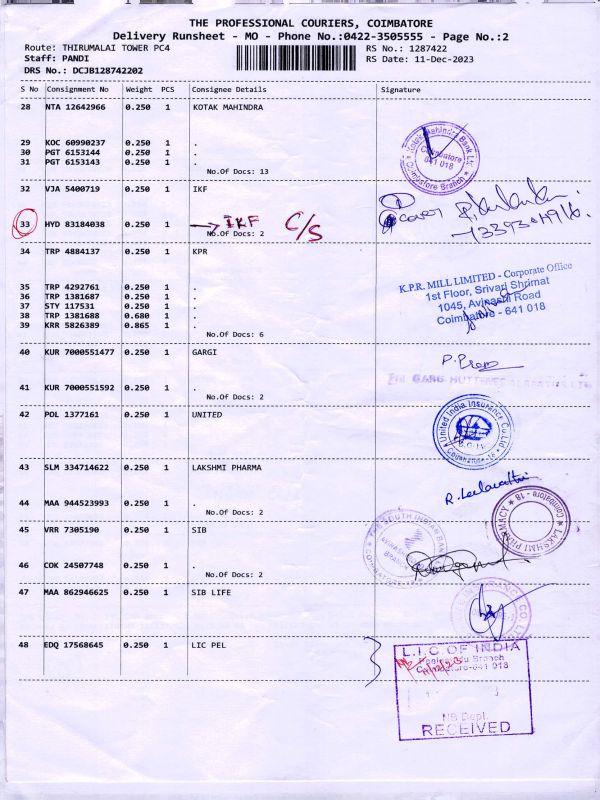 THE PROFESSIONAL COURIERS, COIMBATORE
Delivery Runsheet - MO - Phone No.:0422-3505555 - Page No.:2
Route: THIRUMALAI TOWER PC4 RS No.: 1287422
Staff: PANDI RS Date: 11-Dec-2023
DRS No.: DCJB128742202
S No Consignment No Weight PCS Consignee Details Signature
28 NTA 12642966 0.250 1 KOTAK MAHINDRA
29 KOC 60990237 0.250 1 .
30 PGT 6153144 0.250 1 .
31 PGT 6153143 0.250 1 .
No.Of Docs: 13
Kotak Mahindra Bank Ltd.
Coimbatore
641 018
Coimbatore Branch
32 VJA 5400719 0.250 1 IKF
33 HYD 83184038 0.250 1 → IKF C/S
No.Of Docs: 2
34 TRP 4884137 0.250 1 KPR
35 TRP 4292761 0.250 1 .
36 TRP 1381687 0.250 1 .
37 STY 117531 0.250 1 .
38 TRP 1381688 0.680 1 .
39 KRR 5826389 0.865 1 .
No.Of Docs: 6
K.P.R. MILL LIMITED - Corporate Office
1st Floor, Srivari Shrimat
1045, Avinashi Road
Coimbatore - 641 018
40 KUR 7000551477 0.250 1 GARGI
41 KUR 7000551592 0.250 1 .
No.Of Docs: 2
42 POL 1377161 0.250 1 UNITED
United India Insurance Co. Ltd
43 SLM 334714622 0.250 1 LAKSHMI PHARMA
44 MAA 944523993 0.250 1 .
No.Of Docs: 2
LAKSHMI PHARMACY Coimbatore - 18
45 VRR 7305190 0.250 1 SIB
46 COK 24507748 0.250 1 .
No.Of Docs: 2
THE SOUTH INDIAN BANK
47 MAA 862946625 0.250 1 SIB LIFE
48 EDQ 17568645 0.250 1 LIC PEL
L.I.C OF INDIA
Branch
641 018
NB Dept.
RECEIVED